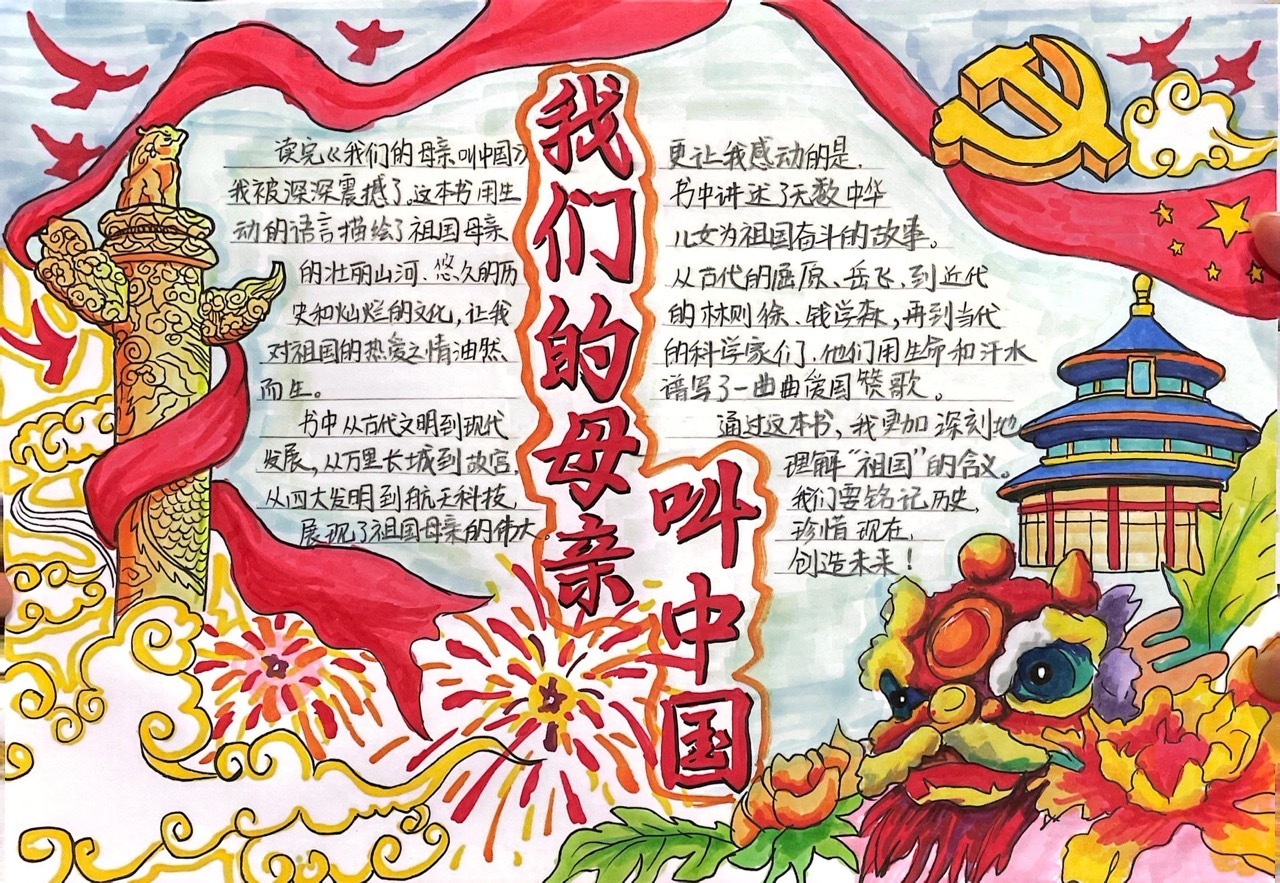 我们的母亲叫中国
读完《我们的母亲叫中国》
我被深深震撼了。这本书用生
动的语言描绘了祖国母亲
的壮丽山河、悠久的历
史和灿烂的文化，让我
对祖国的热爱之情油然
而生。
书中从古代文明到现代
发展，从万里长城到故宫，
从四大发明到航天科技，
展现了祖国母亲的伟大。
更让我感动的是，
书中讲述了无数中华
儿女为祖国奋斗的故事。
从古代的屈原、岳飞，到近代
的林则徐、钱学森，再到当代
的科学家们，他们用生命和汗水
谱写了一曲曲爱国赞歌。
通过这本书，我更加深刻地
理解“祖国”的含义。
我们要铭记历史，
珍惜现在，
创造未来！